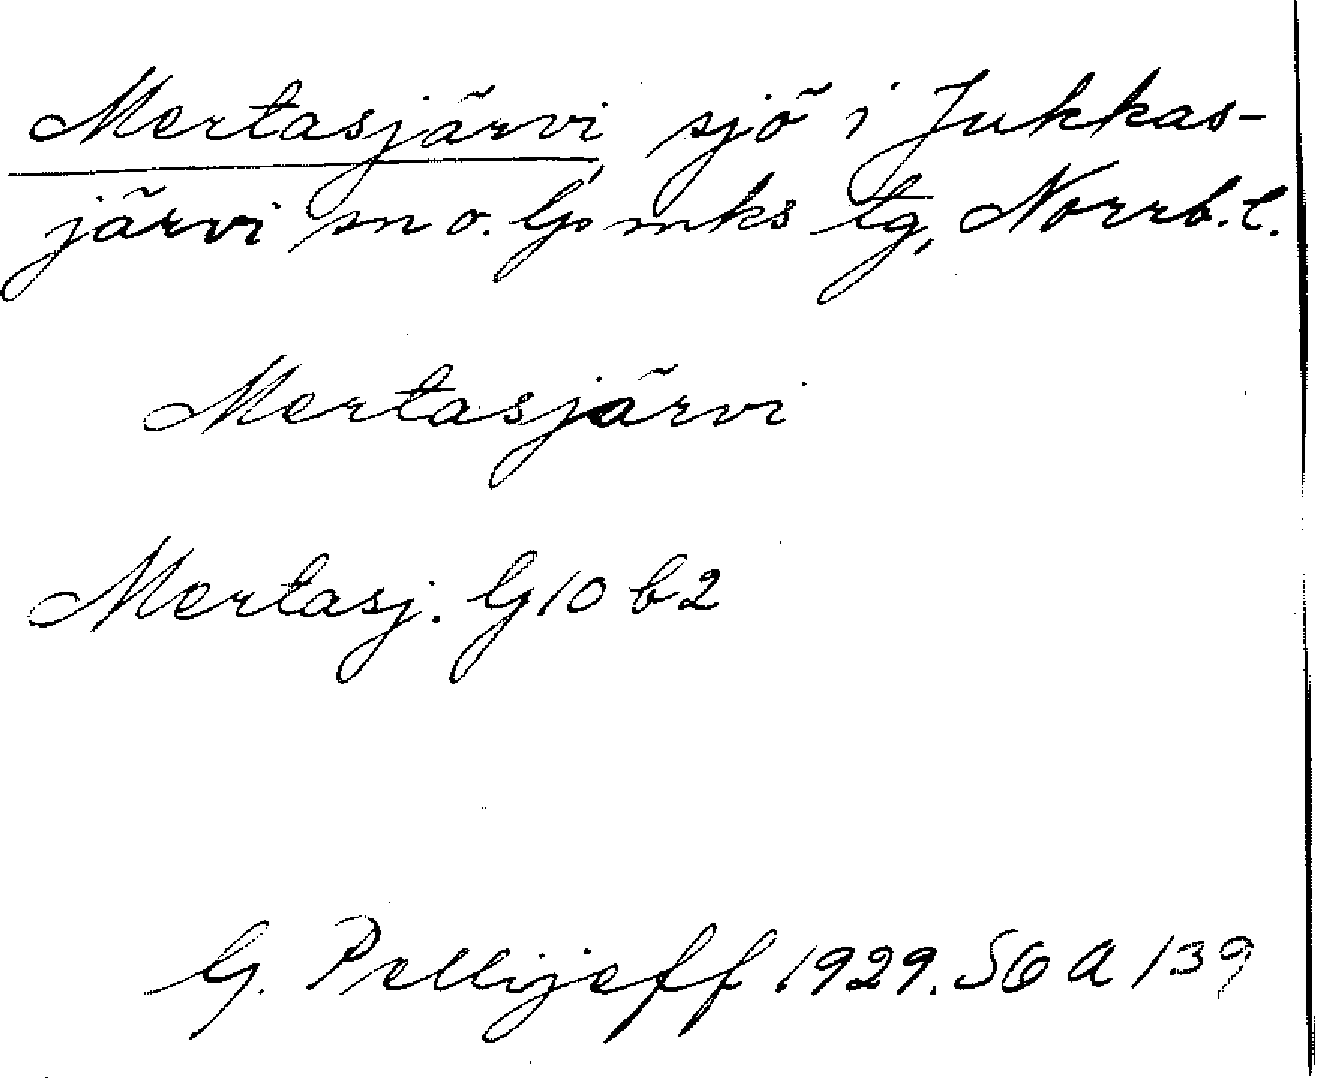 Mertasjärvi, sjö i Jukkas-
järvi sn o. G:o mks tg, Norrb. l.
Mertasjärvi
Mertasj. G 10 b 2
G. Pellijeff 1929. SGA 139